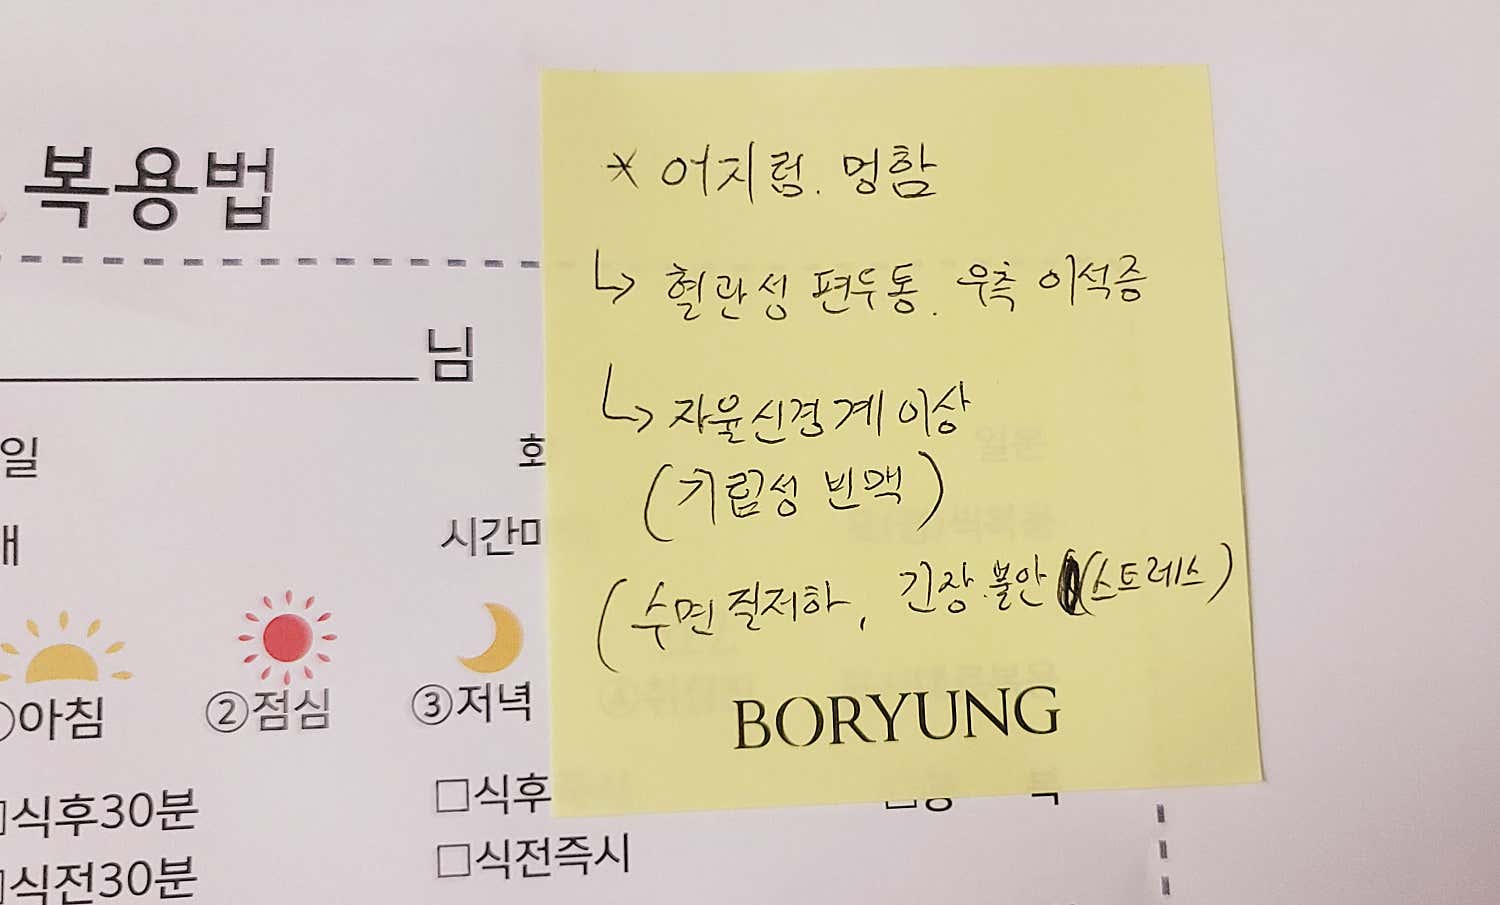 복용법
님
일
회
시간마
①아침 ②점심 ③저녁
□식후30분
□식전30분
□식후
□식전즉시
* 어지럼. 멍함
↳ 혈관성 편두통. 우측 이석증
↳ 자율신경계 이상
(기립성 빈맥)
(수면 질저하, 긴장.불안 (스트레스)
BORYUNG